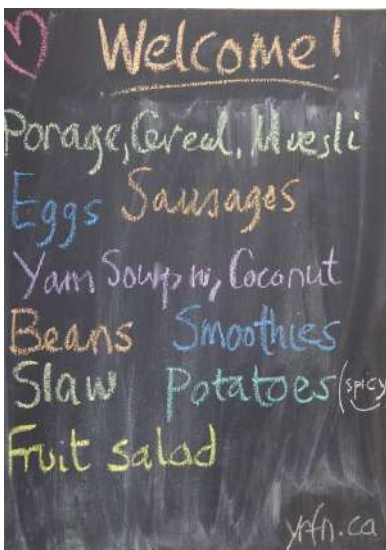 Welcome!
Porage, Cereal, Muesli
Eggs Sausages
Yam Soup w, Coconut
Beans Smoothies
Slaw Potatoes (spicy
Fruit salad
yrfn.ca